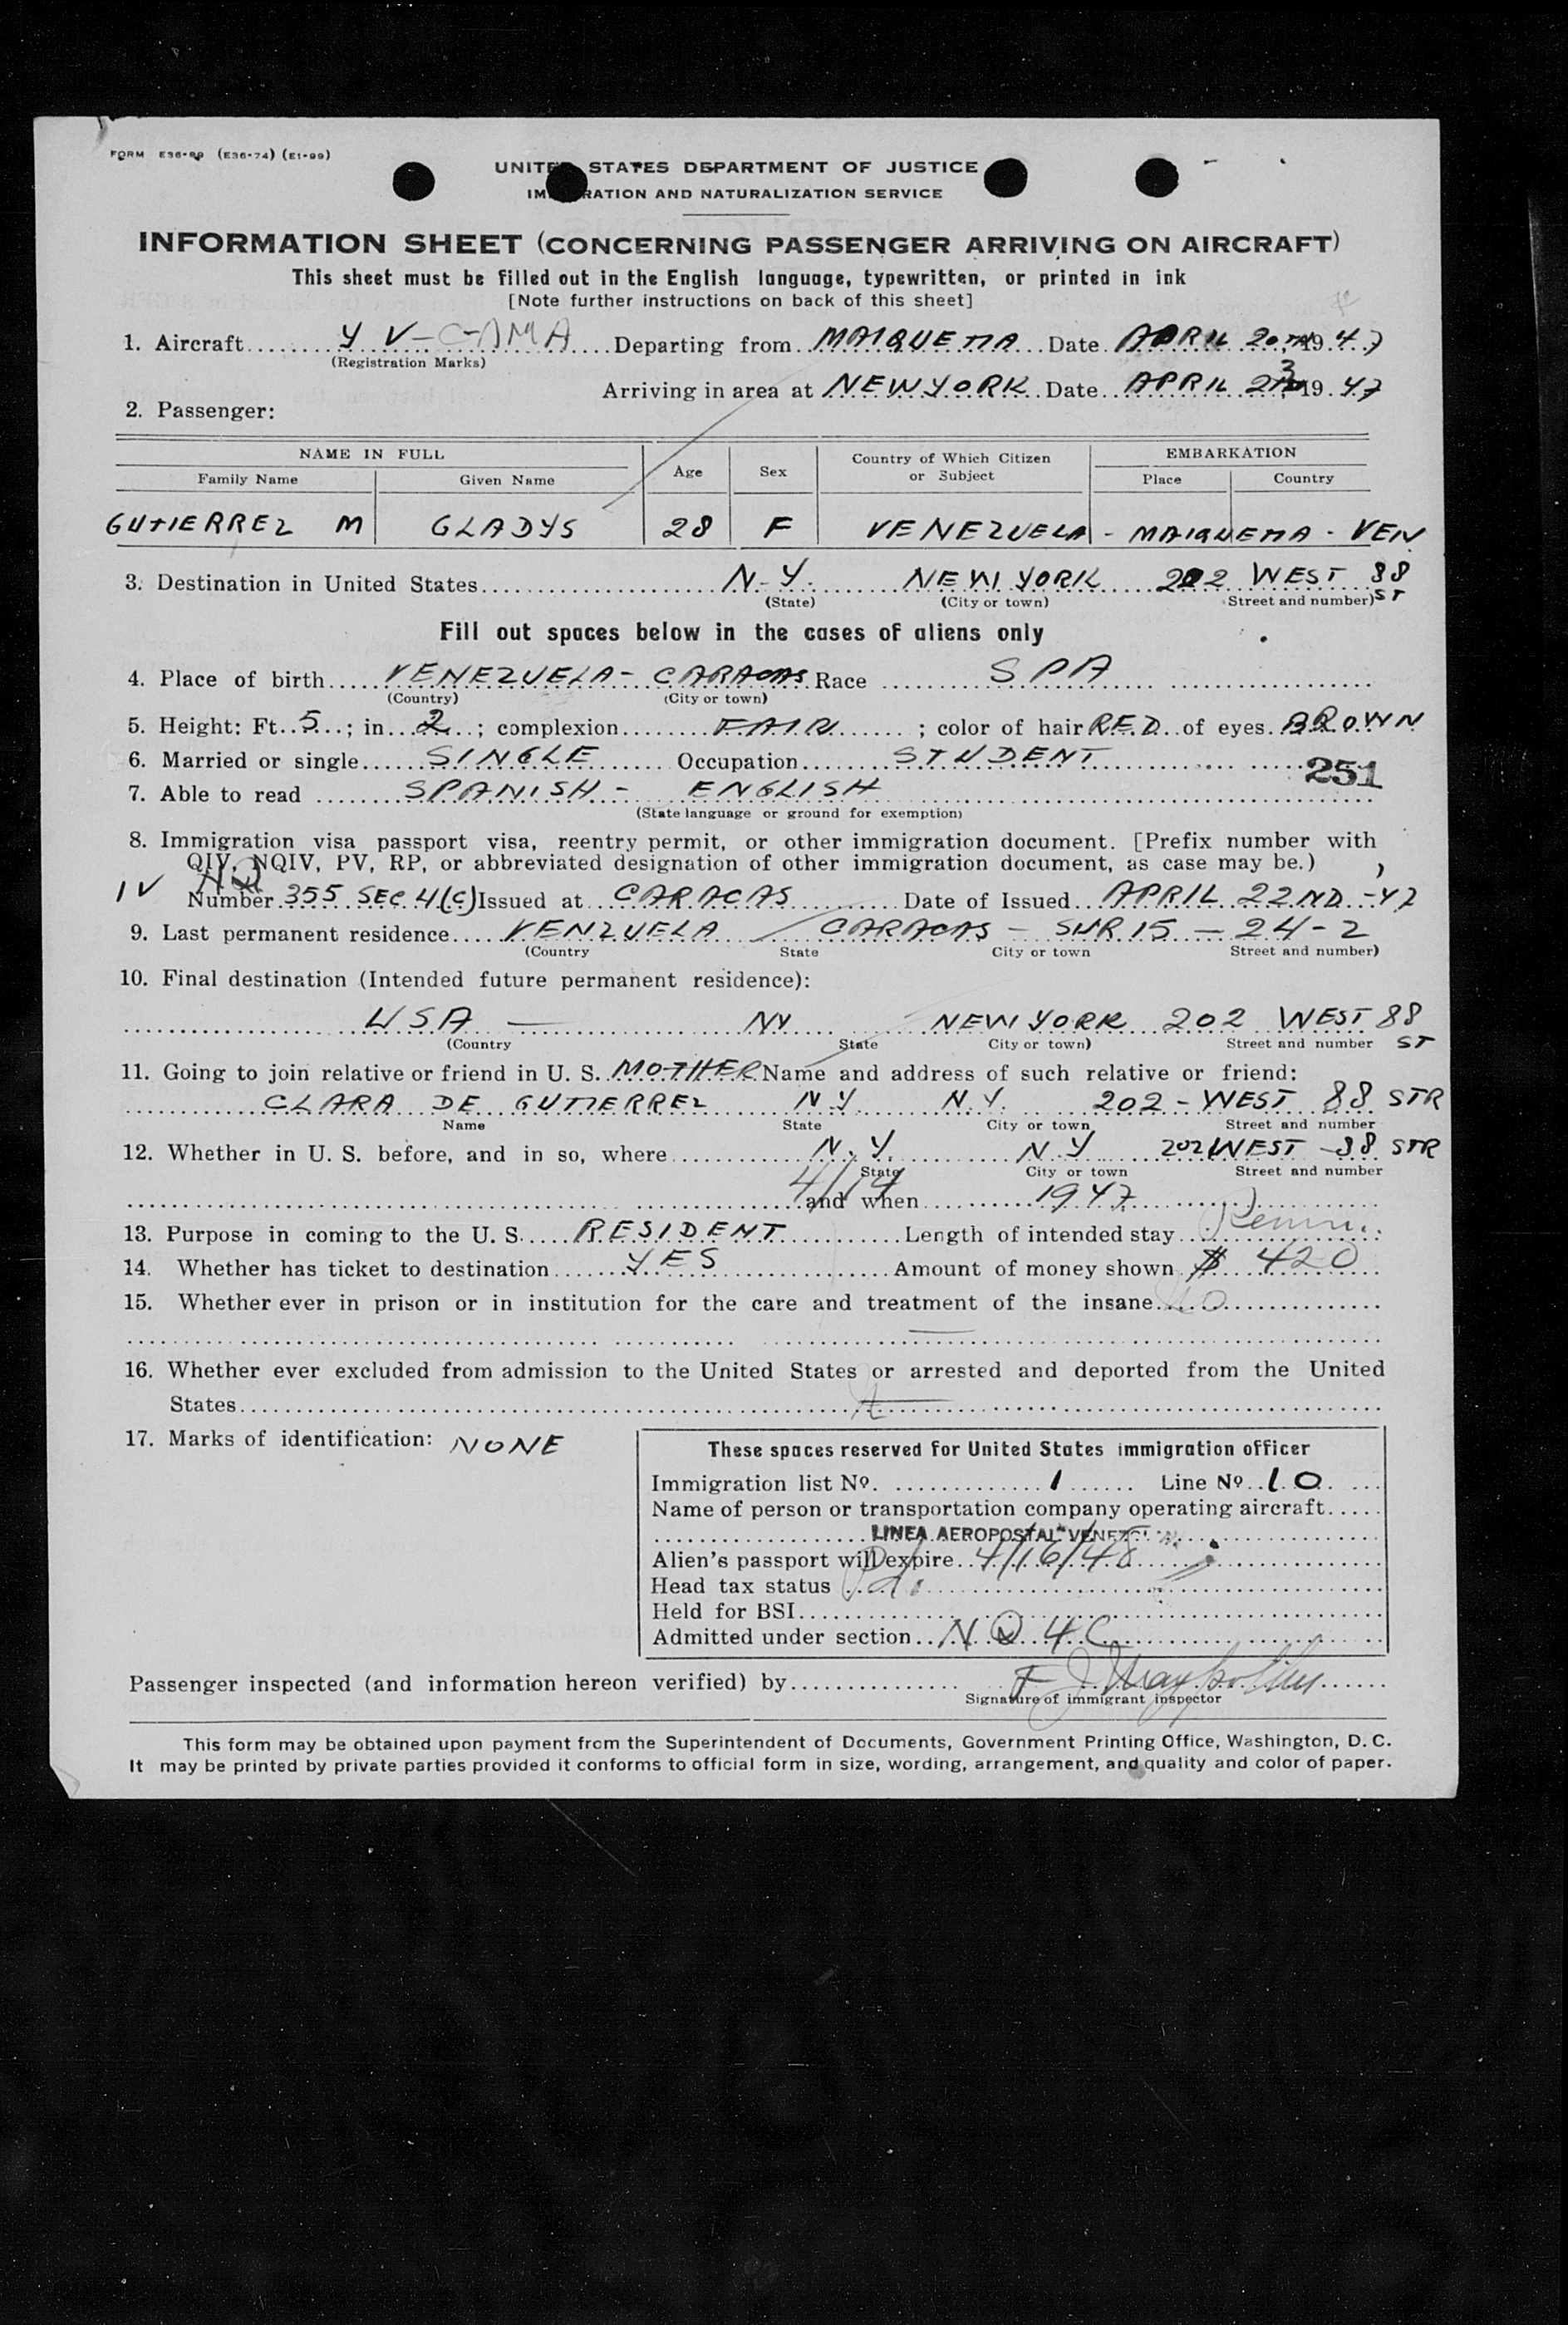 FORM E36-89 (E36-74) (E1-99)
UNITED STATES DEPARTMENT OF JUSTICE
IMMIGRATION AND NATURALIZATION SERVICE
INFORMATION SHEET (CONCERNING PASSENGER ARRIVING ON AIRCRAFT)
This sheet must be filled out in the English language, typewritten, or printed in ink
[Note further instructions on back of this sheet]
1. Aircraft YV-C-AMA Departing from MAIQUETIA Date APRIL 20TH, 1947
(Registration Marks)
Arriving in area at NEW YORK Date APRIL 23 1947
2. Passenger:
NAME IN FULL Age Sex Country of Which Citizen or Subject EMBARKATION
Family Name Given Name Place Country
GUTIERREZ M GLADYS 28 F VENEZUELA - MAIQUETIA - VEN
3. Destination in United States N-Y. NEW YORK 202 WEST 88 ST
(State) (City or town) Street and number)
Fill out spaces below in the cases of aliens only
4. Place of birth VENEZUELA - CARACAS Race SPA
(Country) (City or town)
5. Height: Ft. 5; in 2; complexion FAIR; color of hair RED of eyes BROWN
6. Married or single SINGLE Occupation STUDENT
251
7. Able to read SPANISH - ENGLISH
(State language or ground for exemption)
8. Immigration visa passport visa, reentry permit, or other immigration document. [Prefix number with
QIV, NQIV, PV, RP, or abbreviated designation of other immigration document, as case may be.)
NQ
IV Number 355 SEC 4(C) Issued at CARACAS Date of Issued APRIL 22ND -47
9. Last permanent residence VENZUELA CARACAS - SUR 15 - 24-2
(Country State City or town Street and number)
10. Final destination (Intended future permanent residence):
USA - NY NEW YORK 202 WEST 88 ST
(Country State City or town) Street and number
11. Going to join relative or friend in U. S. MOTHER Name and address of such relative or friend:
CLARA DE GUTIERREZ N.Y N.Y. 202 - WEST 88 STR
Name State City or town Street and number
12. Whether in U. S. before, and in so, where N.Y. N.Y 202 WEST - 88 STR
State City or town Street and number
4/14 and when 1947
13. Purpose in coming to the U. S. RESIDENT Length of intended stay
14. Whether has ticket to destination YES Amount of money shown $ 420
15. Whether ever in prison or in institution for the care and treatment of the insane NO
16. Whether ever excluded from admission to the United States or arrested and deported from the United
States
17. Marks of identification: NONE
These spaces reserved for United States immigration officer
Immigration list No. 1 Line No. 10
Name of person or transportation company operating aircraft
LINEA AEROPOSTAL VENEZOLANA
Alien's passport will expire 4/16/48
Head tax status Pd.
Held for BSI
Admitted under section NQ 4C
Passenger inspected (and information hereon verified) by
Signature of immigrant inspector
This form may be obtained upon payment from the Superintendent of Documents, Government Printing Office, Washington, D. C.
It may be printed by private parties provided it conforms to official form in size, wording, arrangement, and quality and color of paper.